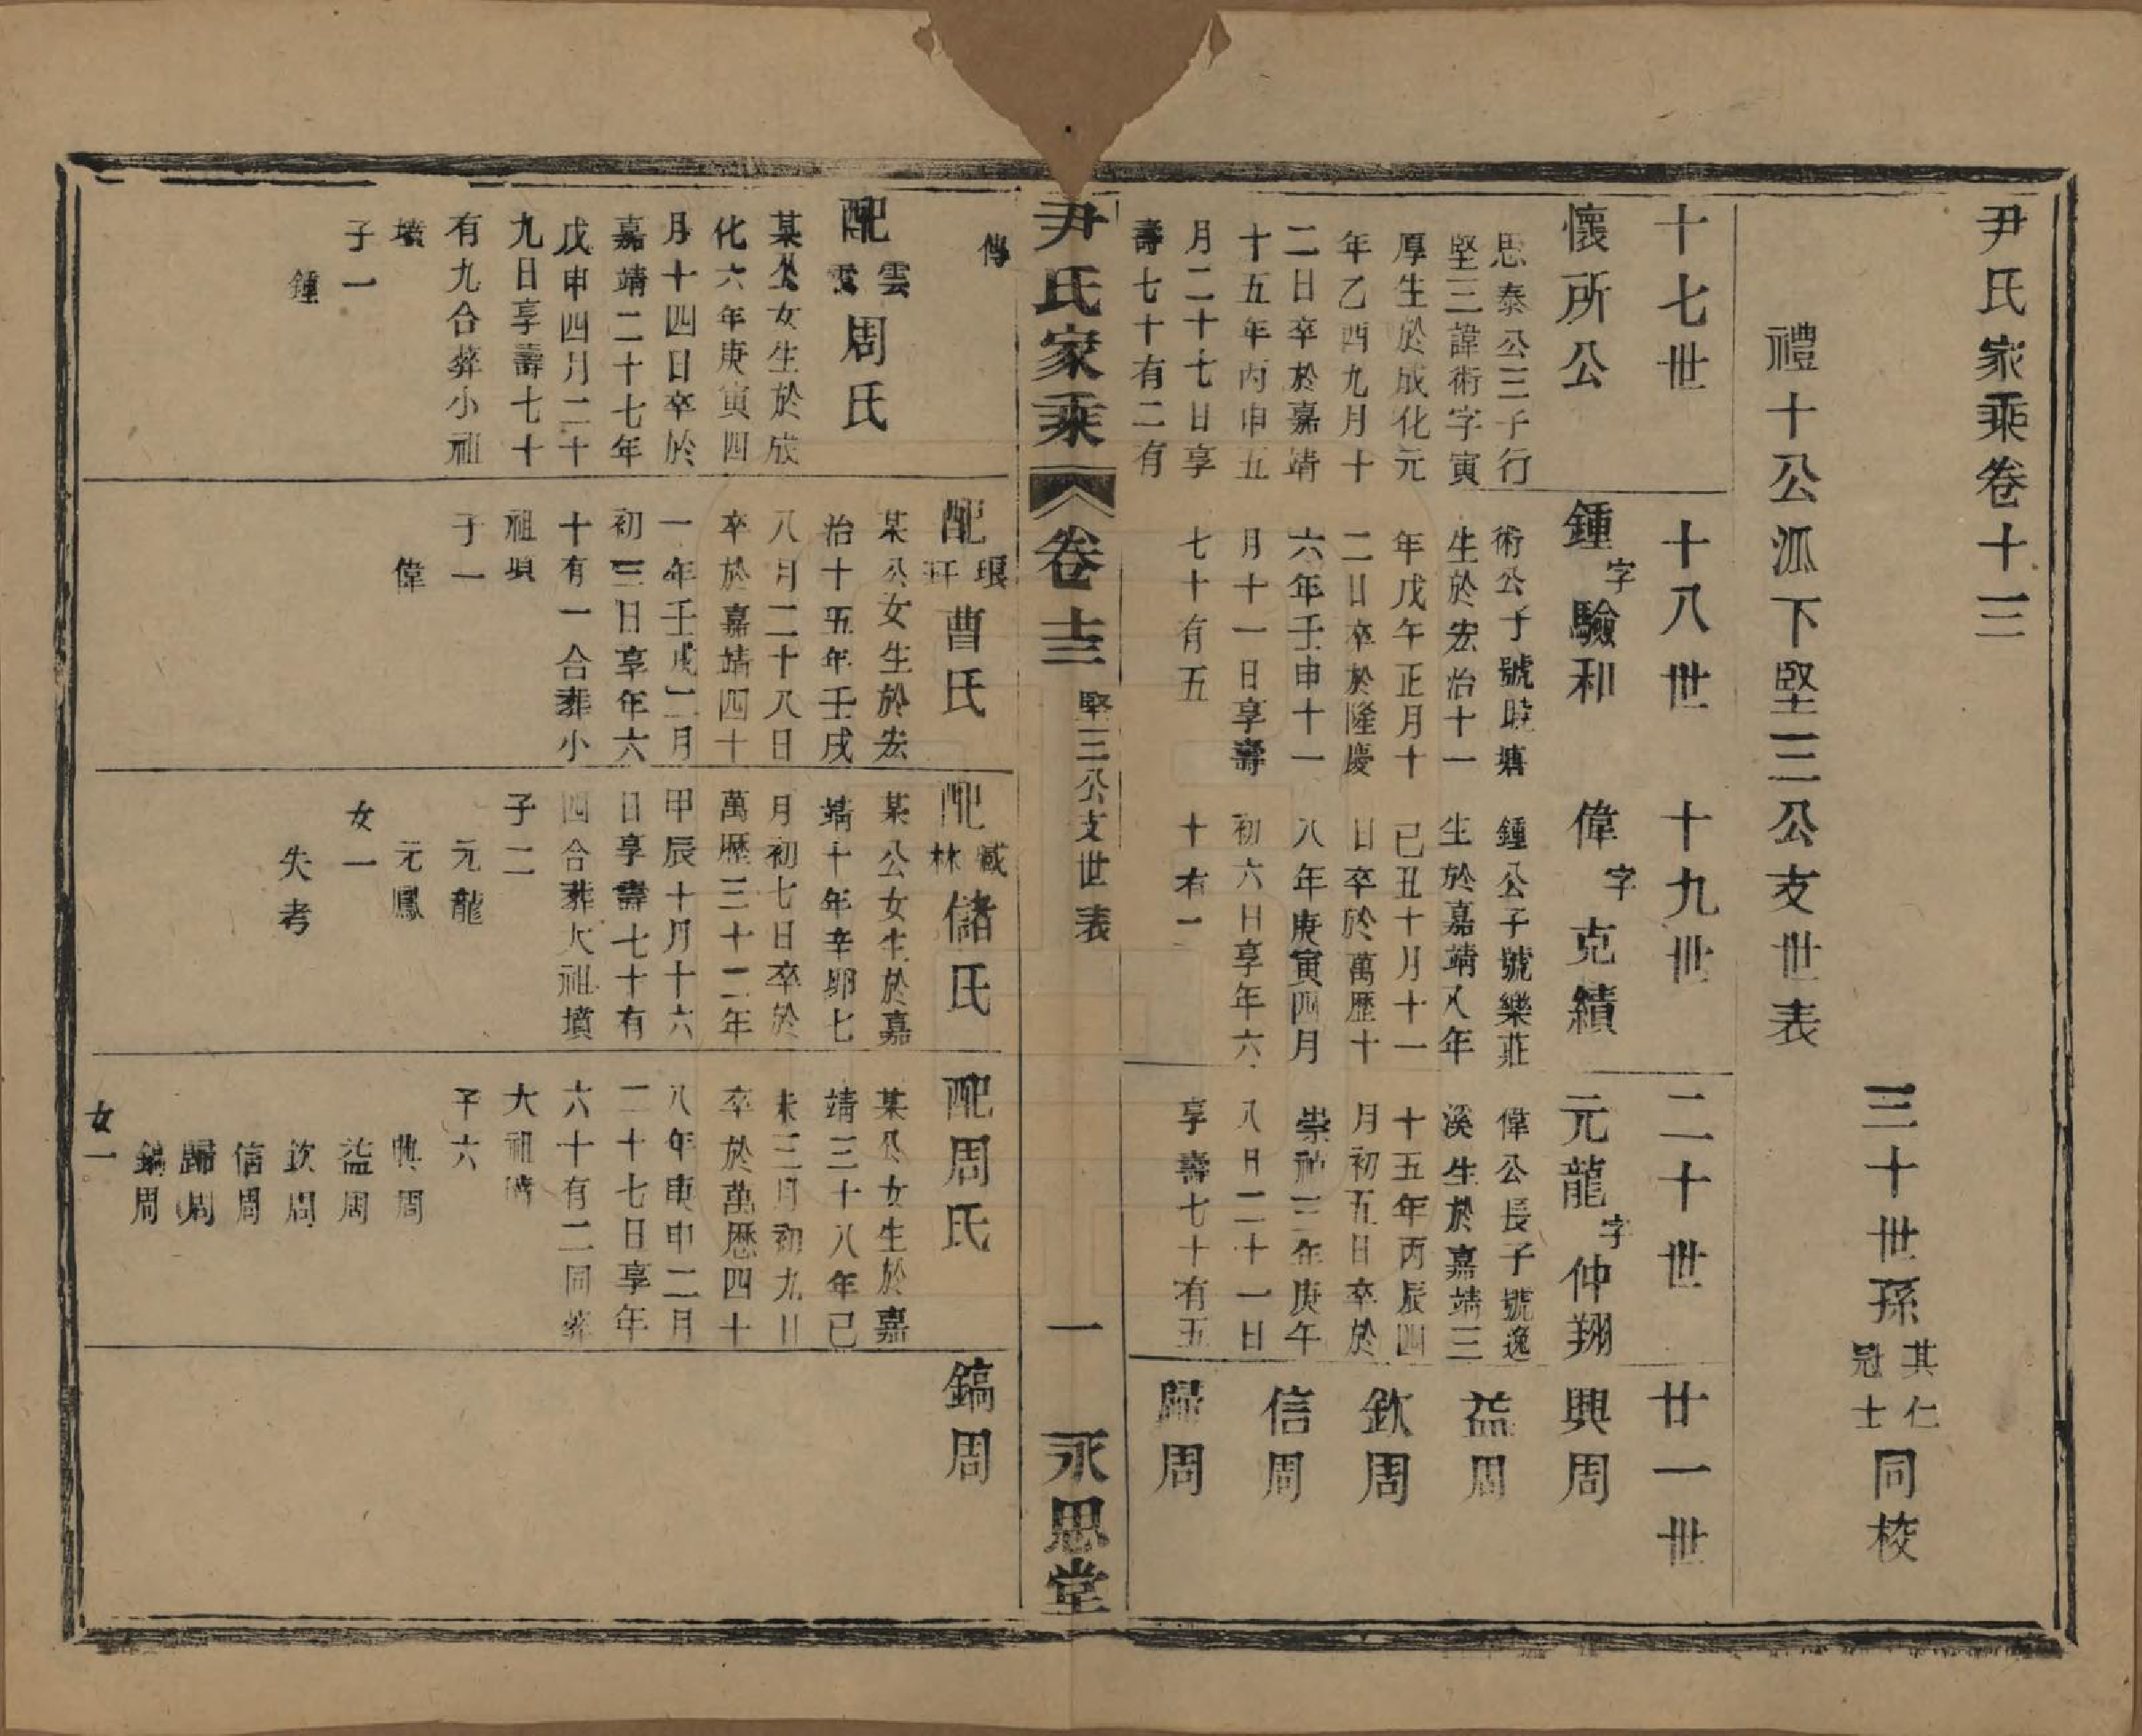 尹氏家乘卷十三
三十世孫其仁冠士同校
禮十公派下堅三公支世表
十七世
懷所公
思泰公三子行
堅三諱術字寅
厚生於成化元
年乙酉九月十
二日卒於嘉靖
十五年丙申五
月二十七日享
壽七十有二有
傳
配雲雲周氏
某公女生於成
化六年庚寅四
月十四日卒於
嘉靖二十七年
戊申四月二十
九日享壽七十
有九合葬小祖
墳
子一
鍾
十八世
鍾字驗和
術公子號時塘
生於宏治十一
年戊午正月十
二日卒於隆慶
六年壬申十一
月十一日享壽
七十有五
配珢玕曹氏
某公女生於宏
治十五年壬戌
八月二十八日
卒於嘉靖四十
一年壬戌二月
初三日享年六
十有一合葬小
祖墳
子一
偉
十九世
偉字克績
鍾公子號樂莊
生於嘉靖八年
己丑十月十一
日卒於萬歷十
八年庚寅四月
初六日享年六
十有二
配臧林儲氏
某公女生於嘉
靖十年辛卯七
月初七日卒於
萬歷三十二年
甲辰十月十六
日享壽七十有
四合葬大祖墳
子二
元龍
元鳳
女一
失考
二十世
元龍字仲翔
偉公長子號逸
溪生於嘉靖三
十五年丙辰四
月初五日卒於
崇禎三年庚午
八月二十一日
享壽七十有五
配周氏
某公女生於嘉
靖三十八年己
未三月初九日
卒於萬歷四十
八年庚申二月
二十七日享年
六十有二同葬
大祖墳
子六
興周
益周
欽周
信周
歸周
鎬周
女一
廿一世
興周
益周
欽周
信周
歸周
鎬周
尹氏家乘 卷十三 堅三公支世表 一 永思堂